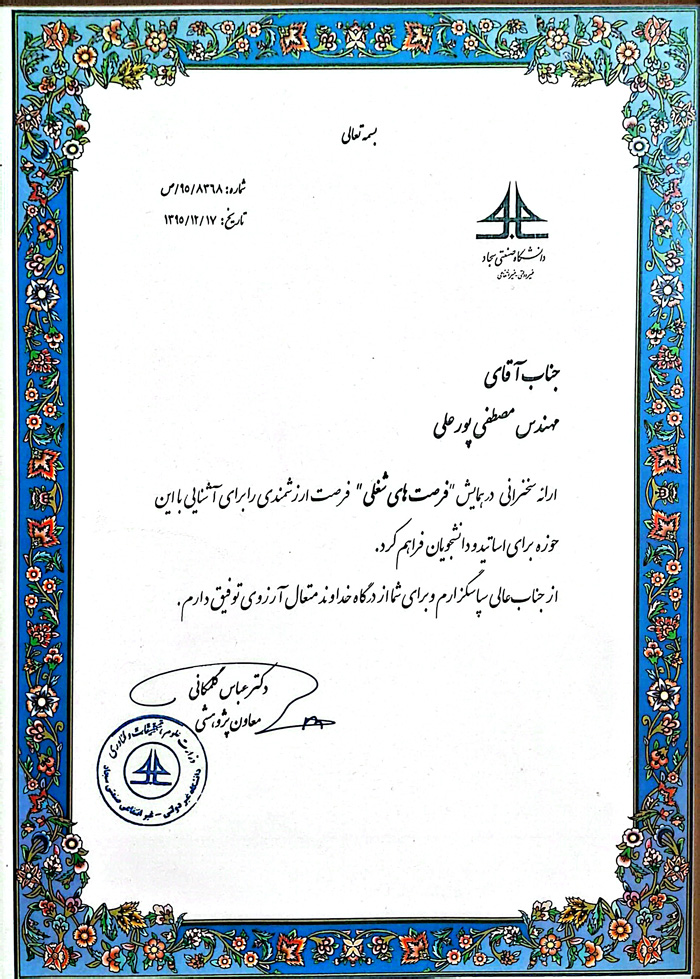 بسمه تعالی
شماره: ۹۵/۸۳۶۸/ص
تاریخ: ۱۳۹۵/۱۲/۱۷
دانشگاه صنعتی سجاد
غیردولتی-غیرانتفاعی
جناب آقای
مهندس مصطفی پورعلی
ارائه سخنرانی در همایش "فرصت های شغلی" فرصت ارزشمندی را برای آشنایی با این
حوزه برای اساتید و دانشجویان فراهم کرد.
از جناب عالی سپاسگزارم و برای شما از درگاه خداوند متعال آرزوی توفیق دارم.
دکتر عباس گلمکانی
معاون پژوهشی
وزارت علوم، تحقیقات و فناوری
دانشگاه غیر دولتی - غیر انتفاعی صنعتی سجاد